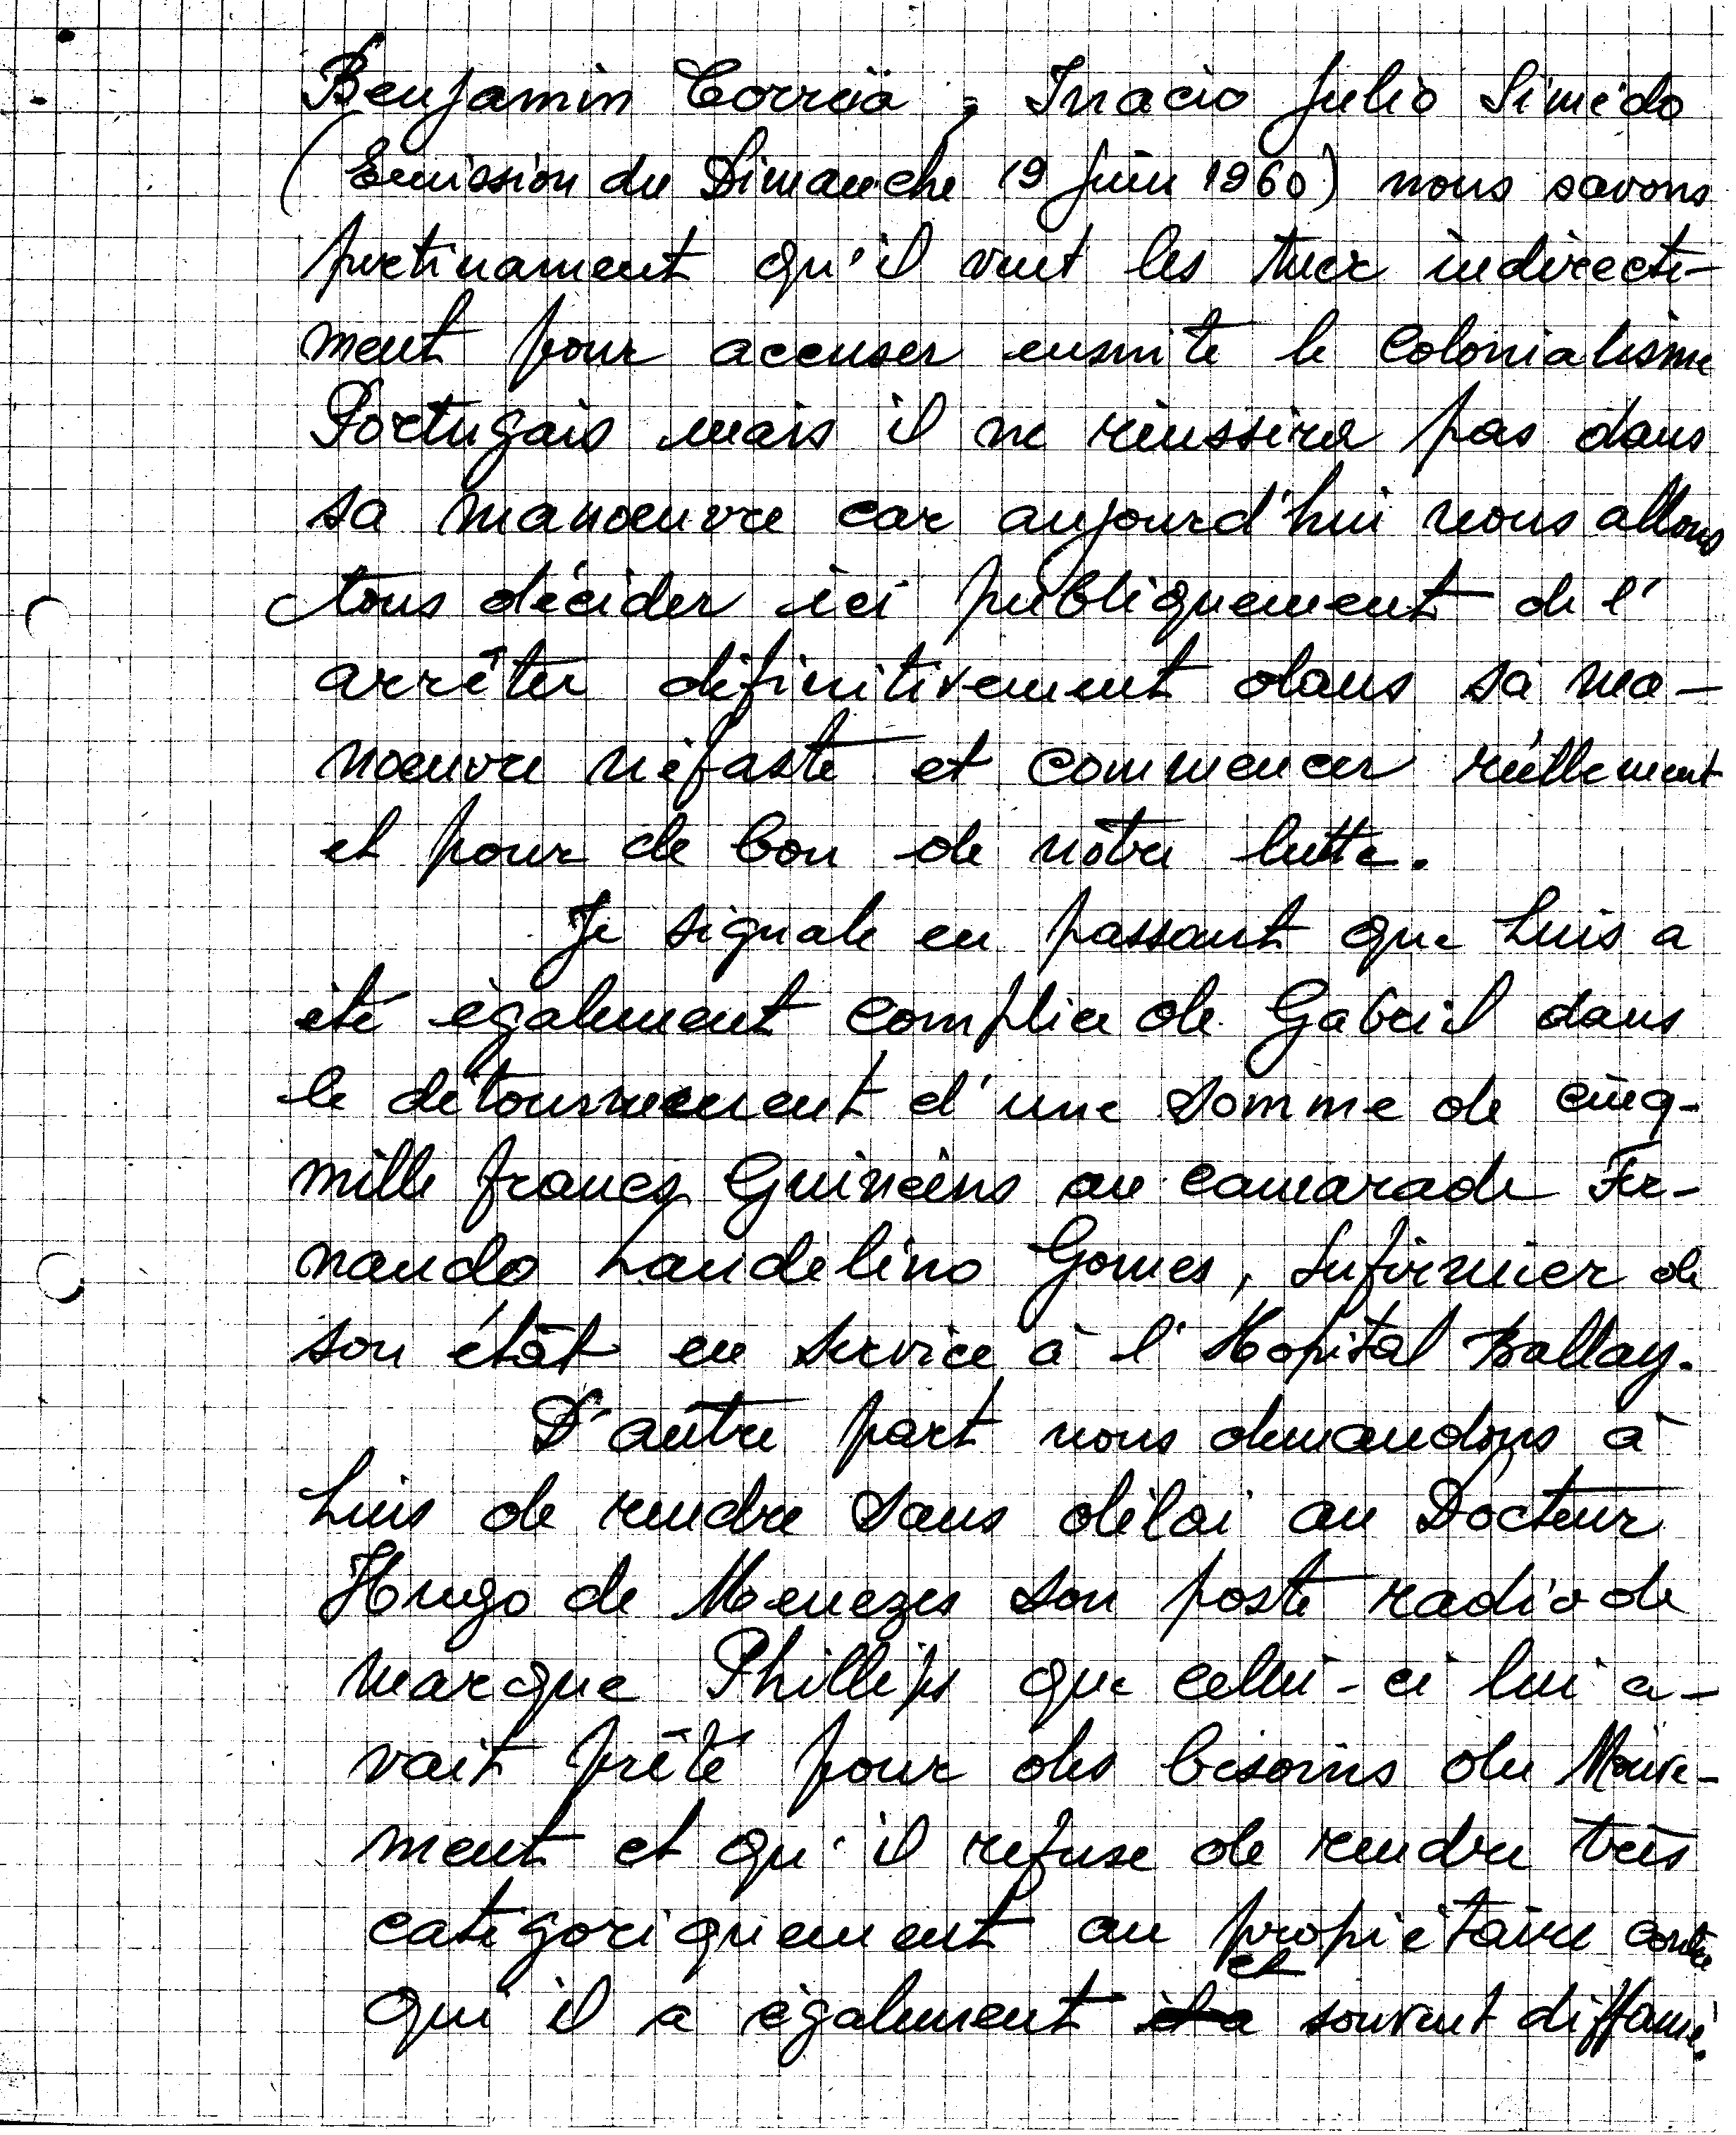 Benjamin Corrëia, Inacio Julio Simédo
(Emission du Dimanche 19 Juin 1960) nous savons
pertinament qu'il veut les tuer indirecte-
ment pour accuser ensuite le Colonialisme
Portugais mais il ne réussira pas dans
sa manœuvre car aujourd'hui nous allons
tous décider ici publiquement de l'
arrêter définitivement dans sa ma-
nœuvre néfaste et commencer réellement
et pour de bon de nôtre lutte.
Je signale en passant que Luis a
été également complice de Gabriel dans
le détournement d'une somme de cinq-
mille francs Guinéens au camarade Fer-
nando Landelino Gomes, Infirmier de
son étât en service à l'Hopital Ballay.
D'autre part nous demandons à
Luis de rendre sans délai au Docteur
Hugo de Menezes son poste radio de
marque Phillips que celui-ci lui a-
vait prêté pour des besoins du Mouve-
ment et qu'il refuse de rendre très
catégoriquement au propiétaire contre
qui il a également et souvent diffamé.